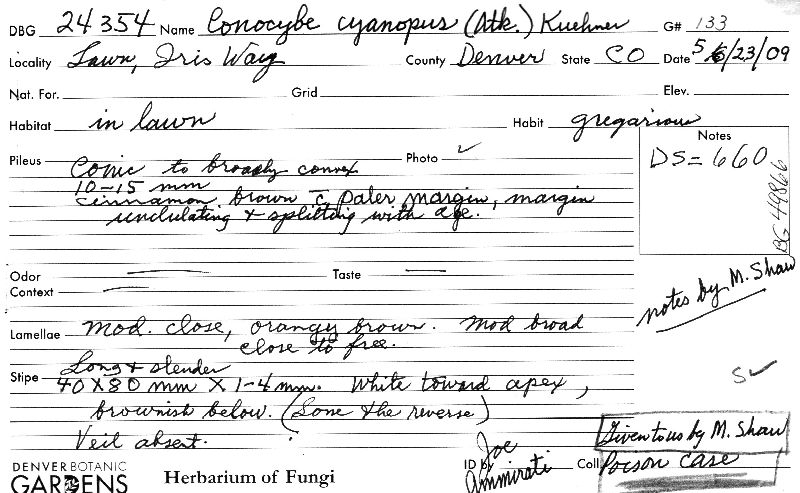 DBG 24354 Name Conocybe cyanopus (Atk.) Kuehner G# 133
Locality Lawn, Iris Way County Denver State CO Date 5/23/09
Nat. For. Grid Elev.
Habitat in lawn Habit gregarious
Notes
DS=660
BG 49866
Pileus Conic to broadly convex Photo ✓
10-15 mm
cinnamon brown c̄ paler margin, margin
undulating & splitting with age.
Odor — Taste —
Context —
notes by M. Shaw
Lamellae Mod. close, orangy brown. Mod broad
close to free.
S✓
Long & slender
Stipe 40 X 80 mm X 1-4 mm. White toward apex,
brownish below. (Some the reverse)
Veil absent.
DENVER BOTANIC
GARDENS
Herbarium of Fungi
ID by Joe
Ammirati
Coll. Given to us by M. Shaw
Poison case